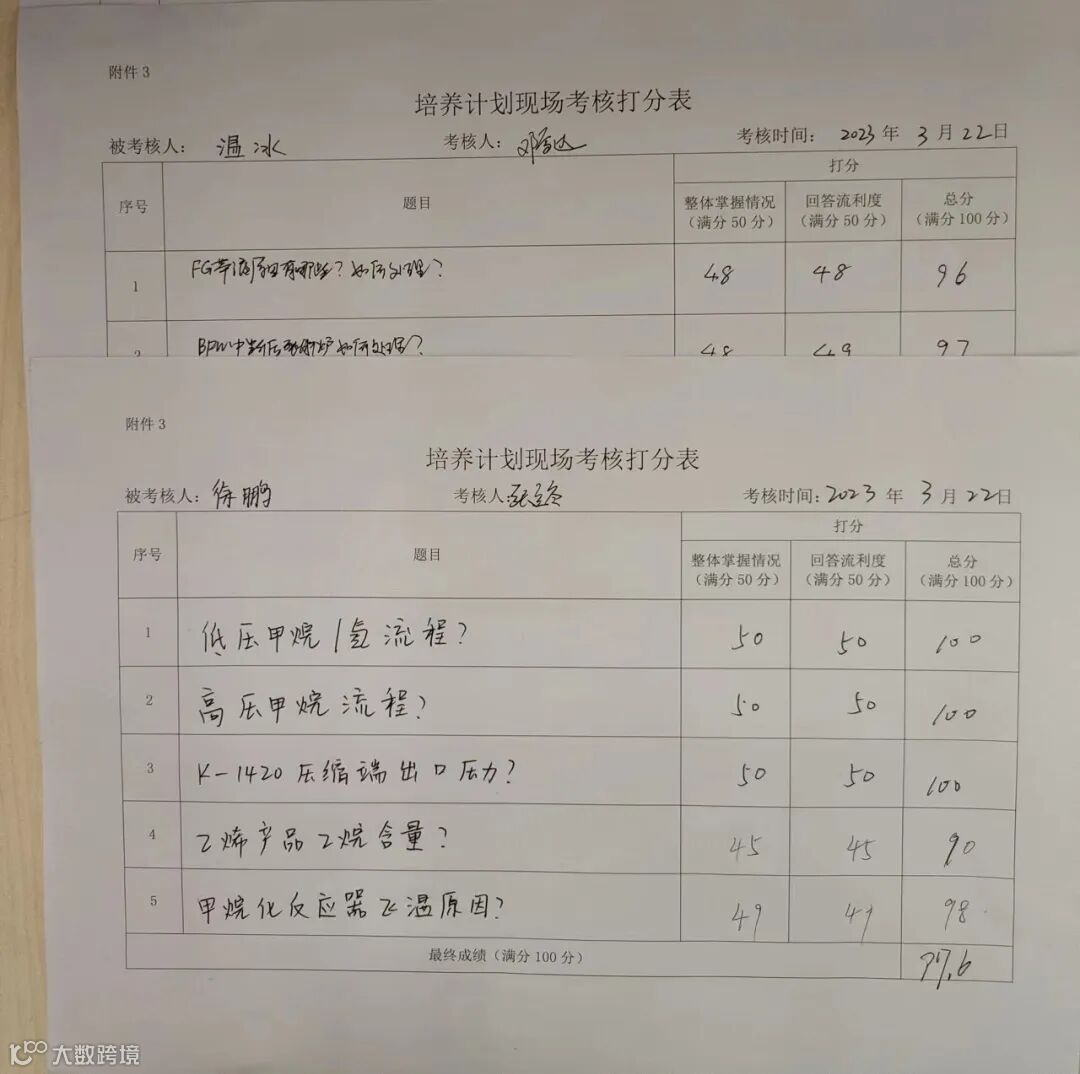 附件 3
培养计划现场考核打分表
被考核人： 温冰 考核人： 考核时间： 2023 年 3 月 22 日
序号 题目 打分
整体掌握情况（满分 50 分） 回答流利度（满分 50 分） 总分（满分 100 分）
1 FG带液原因有哪些？如何处理？ 48 48 96
2 如何处理？ 48 49 97
附件 3
培养计划现场考核打分表
被考核人： 徐鹏 考核人： 考核时间：2023 年 3 月 22 日
序号 题目 打分
整体掌握情况（满分 50 分） 回答流利度（满分 50 分） 总分（满分 100 分）
1 低压甲烷/氢流程？ 50 50 100
2 高压甲烷流程？ 50 50 100
3 K-1420压缩端出口压力？ 50 50 100
4 乙烯产品乙烷含量？ 45 45 90
5 甲烷化反应器飞温原因？ 49 49 98
最终成绩（满分 100 分） 97.6
大数跨境